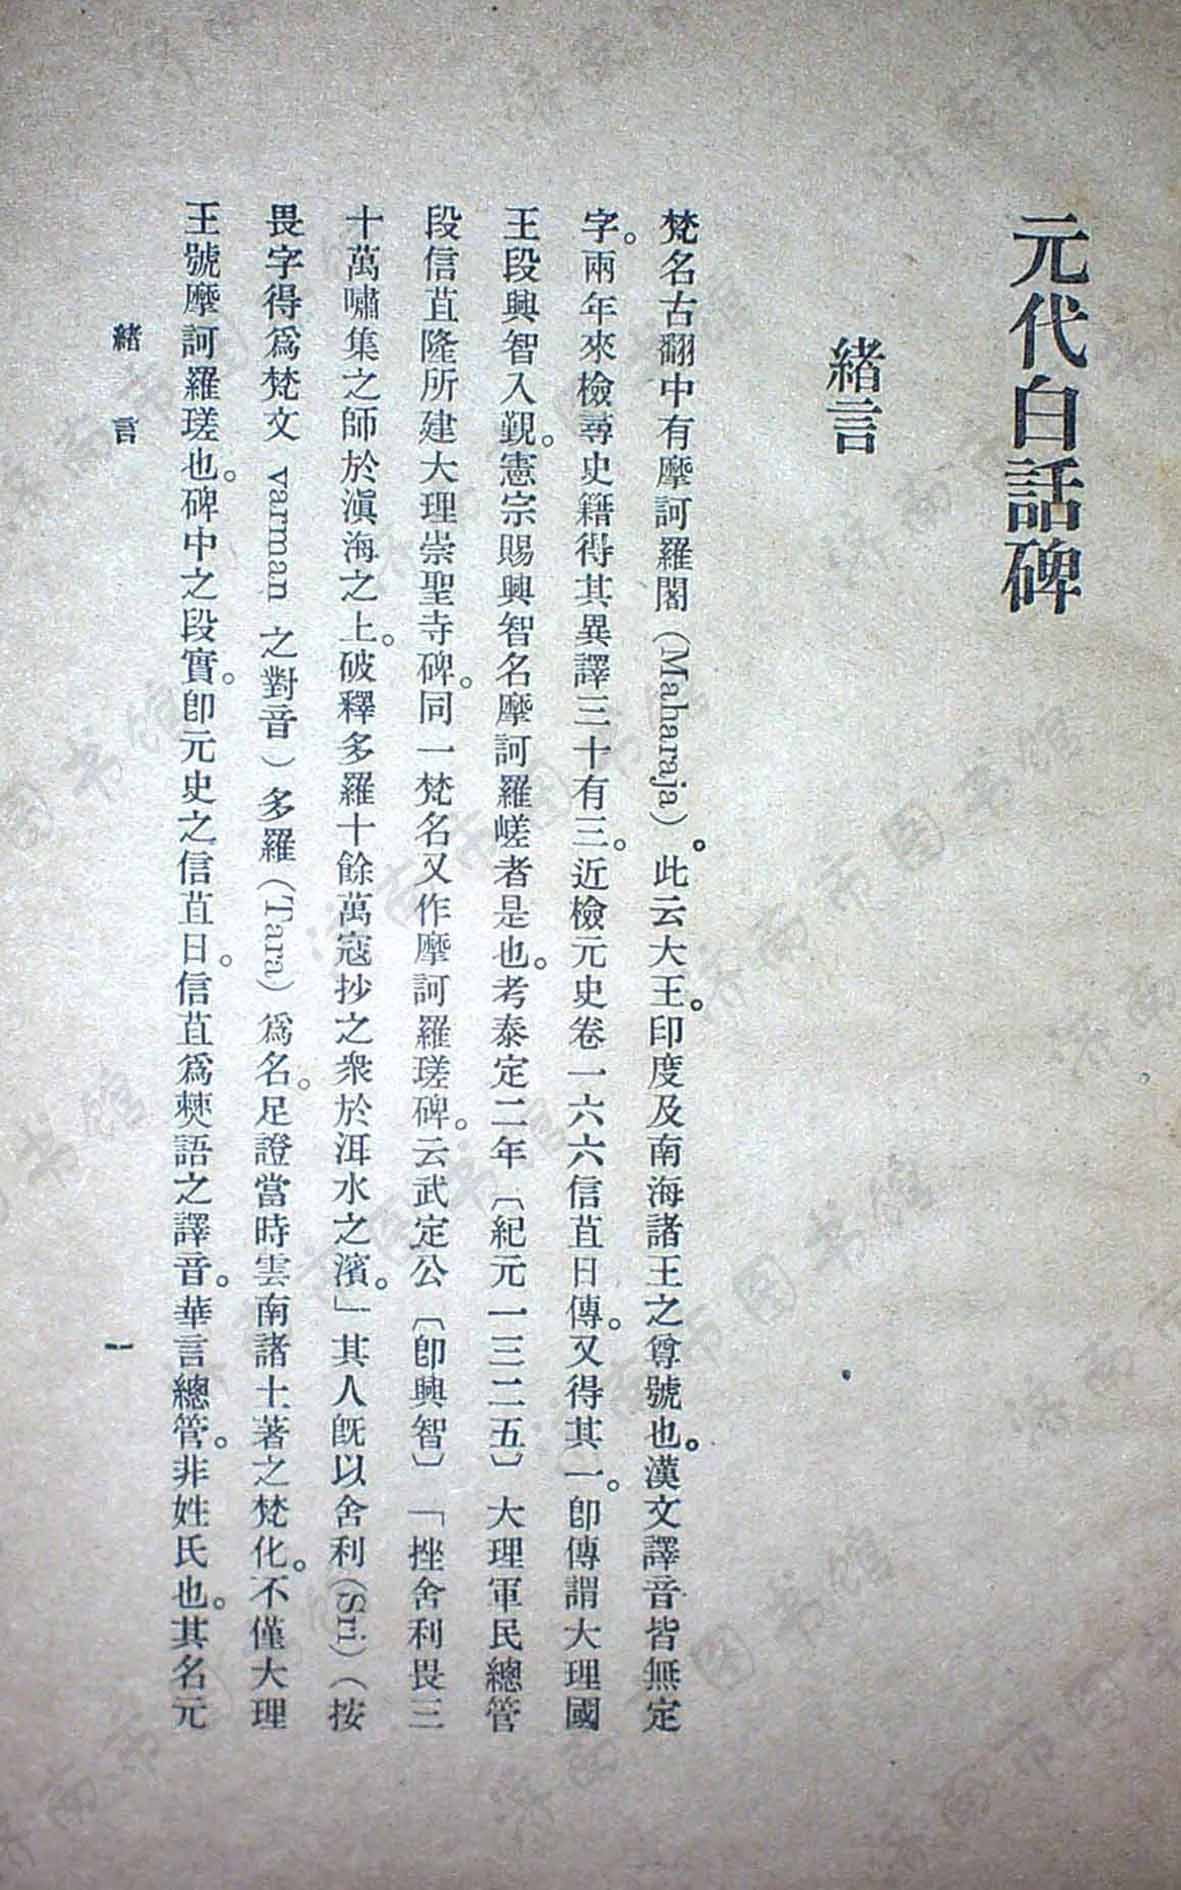 元代白話碑
緒言
梵名古翻中有摩訶羅闍（Maharaja）。此云大王。印度及南海諸王之尊號也。漢文譯音皆無定
字。兩年來檢尋史籍得其異譯三十有三。近檢元史卷一六六信苴日傳。又得其一。卽傳謂大理國
王段興智入覲。憲宗賜興智名摩訶羅嵯者是也。考泰定二年〔紀元一三二五〕大理軍民總管
段信苴隆所建大理崇聖寺碑。同一梵名又作摩訶羅瑳碑。云武定公〔卽興智〕「挫舍利畏三
十萬嘯集之師於滇海之上。破釋多羅十餘萬寇抄之衆於洱水之濱。」其人旣以舍利(Sri)（按
畏字得爲梵文 varman 之對音）多羅（Tara）爲名。足證當時雲南諸土著之梵化。不僅大理
王號摩訶羅瑳也。碑中之段實。卽元史之信苴日。信苴爲僰語之譯音。華言總管。非姓氏也。其名元
緒言
一
濟南市图书馆